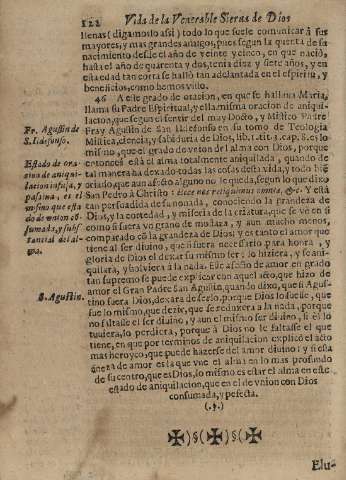 122 Vida de la Venerable Sierua de Dios
llenas (digamoslo assi) todo lo que suele comunicar à sus
mayores, y mas grandes amigos, pues segun la quenta de su
nacimiento desde el año de veinte y cinco, en que nació,
hasta el año de quarenta y dos, tenia diez y siete años, y en
esta edad tan corta se halló tan adelantada en el espiritu, y
beneficios, como hemos visto.
46 A este grado de oracion, en que se hallaua Maria,
llama su Padre Espiritual, y ella misma oracion de aniqui-
lacion, que segun el sentir del muy Docto, y Mistico Padre
Fray Agustin de San Ildefonso en su tomo de Teologia
Mistica, ciencia, y sabiduria de Dios, lib. cap. 8. es lo
mismo, que el grado de vnion del alma con Dios, porque
entonces está el alma totalmente aniquilada, quando de
tal manera ha dexado todas las cosas desta vida, y todo lo
criado, que aun afecto alguno no le queda, segun lo que dixo
San Pedro à Christo: Ecce nos reliquimus omnia, &c. Y està
tan persuadida de su nonada, conociendo la grandeza de
Dios, y la cortedad, y miseria de la criatura, que se vè en si
como si fuera vo grano de mostaza, y aun mucho menos,
comparado cõ la grandeza de Dios; y es tanto el amor que
tiene al ser diuino, que si fuera necessario para honra, y
gloria de Dios el dexar su mismo ser; lo hiziera, y se ani-
quilará, y voluiera à la nada. Este afecto de amor en grado
tan supremo se puede explicar con aquel año, que hizo de
amor el Gran Padre San Agustin, quando dixo, que si Agus-
tino fuera Dios, dexara de serlo, porque Dios lo fuesse, que
fue lo mismo, que dezir, que se reduxera à la nada, porque
no faltasse el ser diuino, y aun el mismo ser diuino, si èl lo
tuuiera, lo perdiera, porque à Dios no le faltasse el que
tiene, en que por terminos de aniquilacion explicó el acto
mas heroyco; que puede hazerse del amor diuino: y si esta
fineza de amor es la que vne el alma en lo mas profundo
de su centro, que es Dios, lo mismo es estar el alma en este
estado de aniquilacion, que en el de vnion con Dios
consumada, y perfecta.
(.§.)
✠)§(✠)§(✠
Elu-
Fr. Agustin de
S. Ildefonso.
Estado de ora-
cion de aniqui-
lacion infusa, y
passiua, es el
mismo que esta-
do de vnion cõ-
sumada, y subs-
tancial del al-
ma.
S. Agustin.